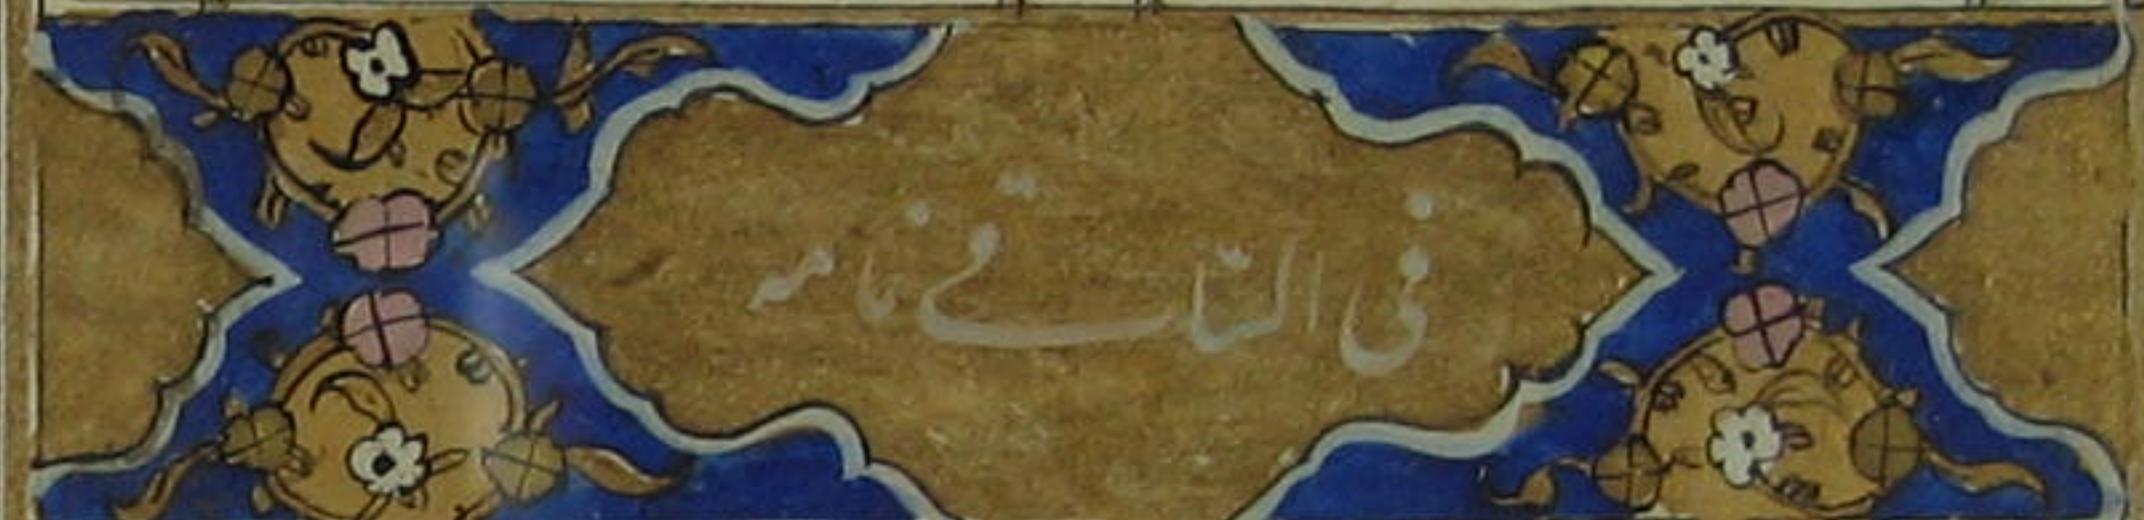 فی السّاقی نامه